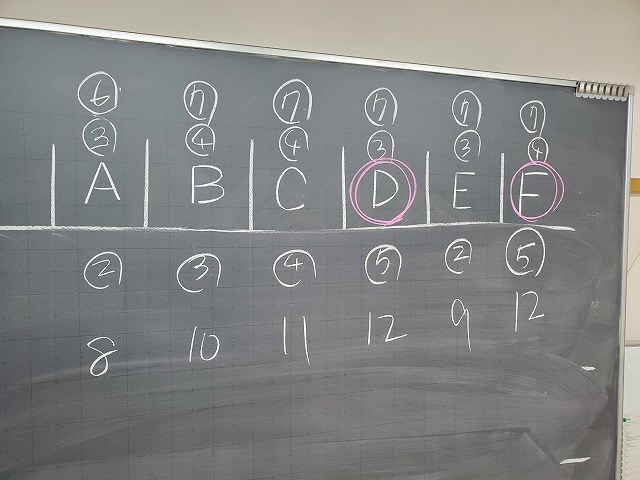 ⑥ ⑦ ⑦ ⑦ ⑦ ⑦
③ ④ ④ ③ ③ ④
A B C D E F
② ③ ④ ⑤ ② ⑤
8 10 11 12 9 12